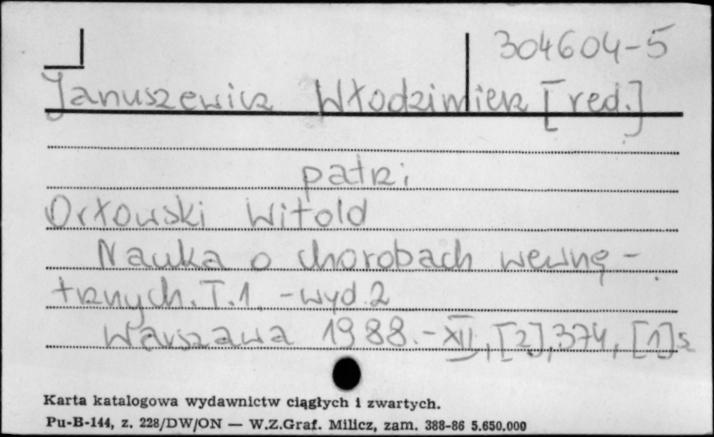 304604-5
Januszewicz Włodzimierz [red.]
patrz:
Orłowski Witold
Nauka o chorobach wewnę-
trznych. T.1. - wyd. 2
Warszawa 1988. - XII, [2], 374, [1] s
Karta katalogowa wydawnictw ciągłych i zwartych.
Pu-B-144, z. 228/DW/ON — W.Z.Graf. Milicz, zam. 388-86 5.650.000